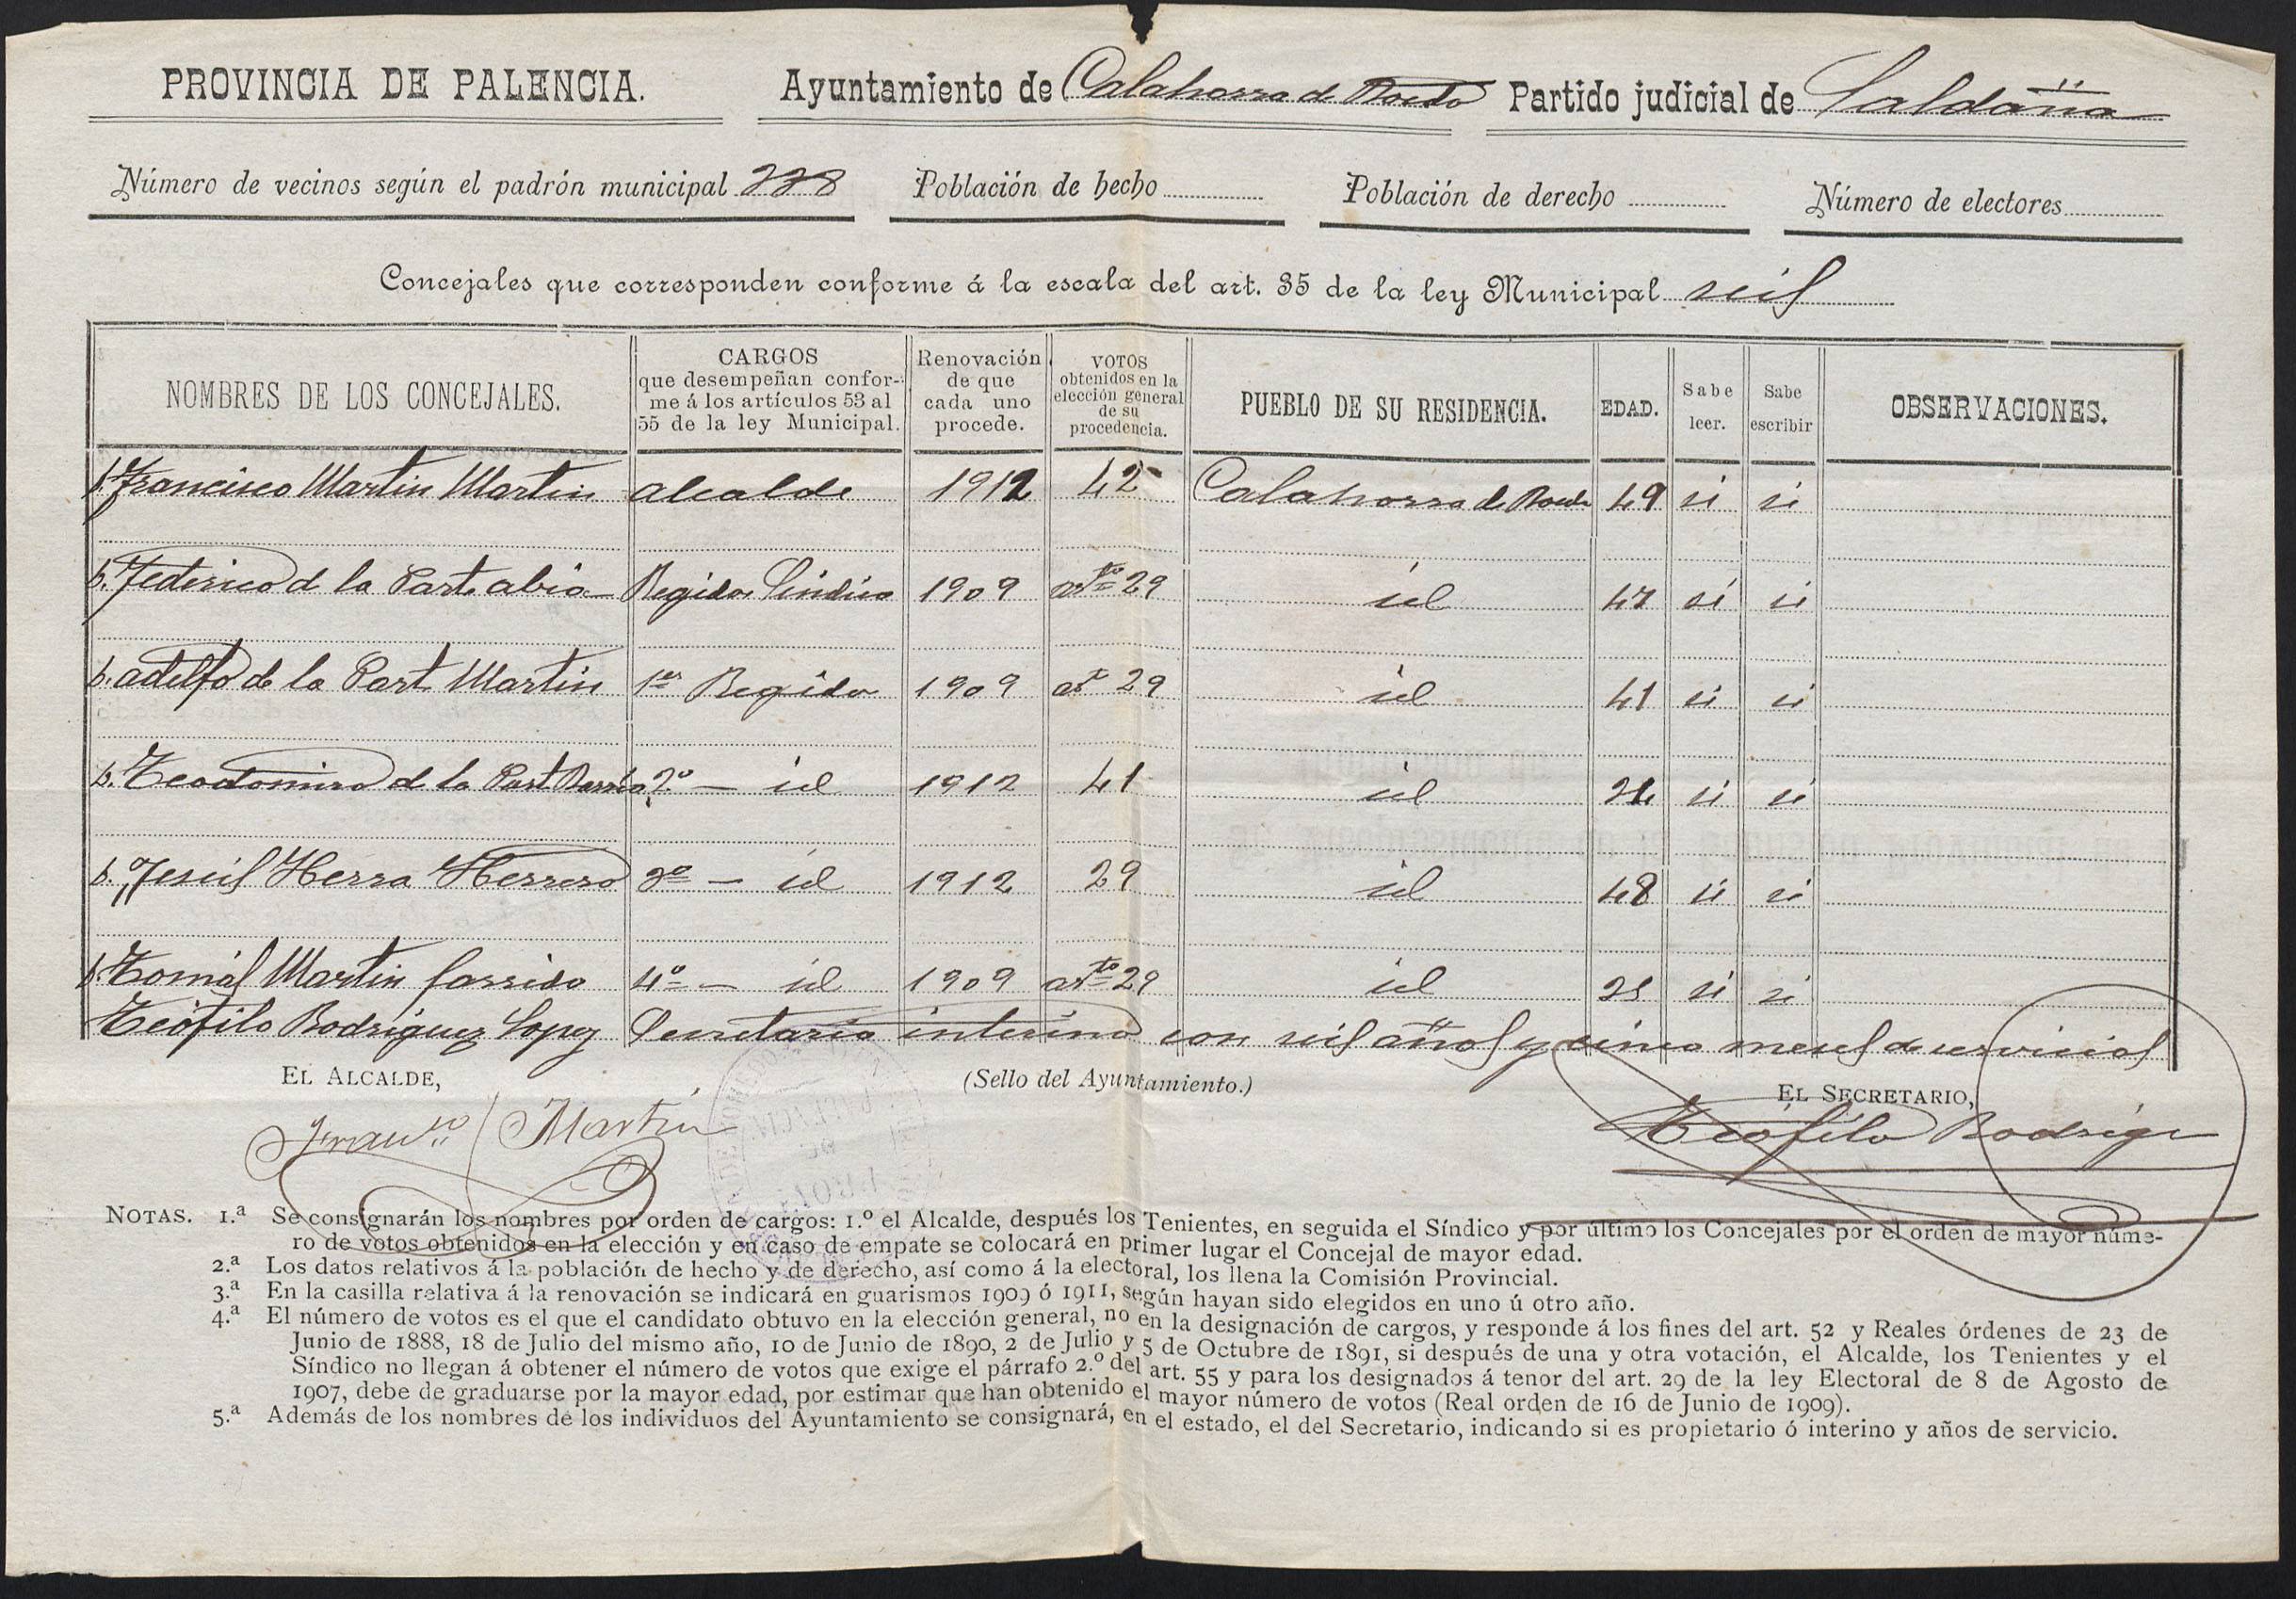 PROVINCIA DE PALENCIA. Ayuntamiento de Calahorra de Boedo Partido judicial de Saldaña
Número de vecinos según el padrón municipal 228 Población de hecho Población de derecho Número de electores
Concejales que corresponden conforme á la escala del art. 35 de la ley Municipal seis
NOMBRES DE LOS CONCEJALES. CARGOS que desempeñan conforme á los artículos 53 al 55 de la ley Municipal. Renovación de que cada uno procede. VOTOS obtenidos en la elección general de su procedencia. PUEBLO DE SU RESIDENCIA. EDAD. Sabe leer. Sabe escribir OBSERVACIONES.
D. Francisco Martin Martin alcalde 1912 42 Calahorra de Boedo 49 si si
D. Federico de la Parte abia Regidor Sindico 1909 arto 29 id 47 si si
D. adolfo de la Parte Martin 1er Regidor 1909 art 29 id 41 si si
D. Teodomiro de la Parte 2º — id 1912 41 id si si
D. Jesús Herra Herrero 3º — id 1912 29 id 48 si si
D. Tomás Martin Garrido 4º — id 1909 arto 29 id si si
Teófilo Rodriguez Lopez Secretario interino con seis años y cinco meses de servicios
EL ALCALDE, (Sello del Ayuntamiento.) EL SECRETARIO,
Franco Martin Teófilo Rodrigz
NOTAS. 1.ª Se consignarán los nombres por orden de cargos: 1.º el Alcalde, después los Tenientes, en seguida el Síndico y por último los Concejales por el orden de mayor núme-
ro de votos obtenidos en la elección y en caso de empate se colocará en primer lugar el Concejal de mayor edad.
2.ª Los datos relativos á la población de hecho y de derecho, así como á la electoral, los llena la Comisión Provincial.
3.ª En la casilla relativa á la renovación se indicará en guarismos 1909 ó 1911, según hayan sido elegidos en uno ú otro año.
4.ª El número de votos es el que el candidato obtuvo en la elección general, no en la designación de cargos, y responde á los fines del art. 52 y Reales órdenes de 23 de
Junio de 1888, 18 de Julio del mismo año, 10 de Junio de 1890, 2 de Julio y 5 de Octubre de 1891, si después de una y otra votación, el Alcalde, los Tenientes y el
Síndico no llegan á obtener el número de votos que exige el párrafo 2.º del art. 55 y para los designados á tenor del art. 29 de la ley Electoral de 8 de Agosto de
1907, debe de graduarse por la mayor edad, por estimar que han obtenido el mayor número de votos (Real orden de 16 de Junio de 1909).
5.ª Además de los nombres de los individuos del Ayuntamiento se consignará, en el estado, el del Secretario, indicando si es propietario ó interino y años de servicio.